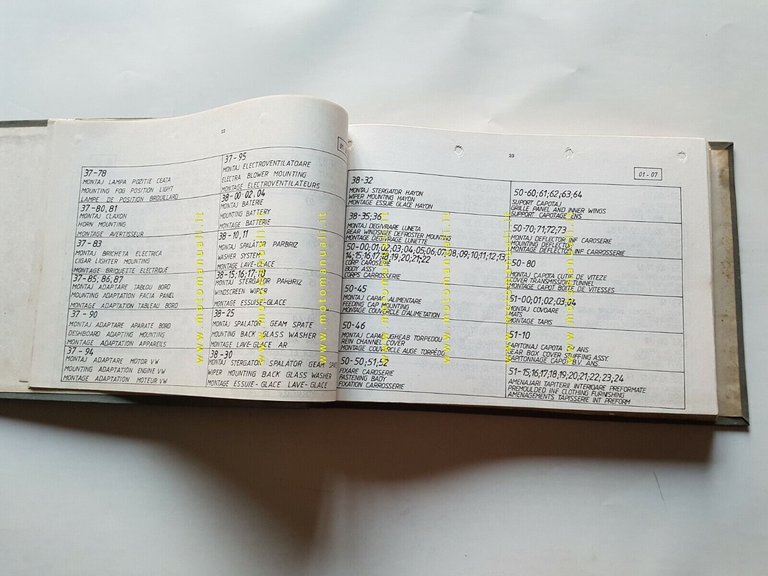 22
37-78
MONTAJ LAMPA POZITIE CEATA
MOUNTING FOG POSITION LIGHT
LAMPE DE POSITION BROUILLARD
37-80, 81
MONTAJ CLAXON
HORN MOUNTING
MONTAGE AVERTISSEUR
37-83
MONTAJ BRICHETA ELECTRICA
CIGAR LIGHTER MOUNTING
MONTAGE BRIQUETTE ELECTRIQUE
37-85, 86, 87
MONTAJ ADAPTARE TABLOU BORD
MOUNTING ADAPTATION FACIA PANEL
MONTAGE ADAPTATION TABLEAU BORD
37-90
MONTAJ ADAPTARE APARATE BORD
DESHBOARD ADAPTING MOUNTING
MONTAGE ADAPTATION APPAREILS
37-94
MONTAJ ADAPTARE MOTOR VW
MOUNTING ADAPTATION ENGINE VW
MONTAGE ADAPTATION MOTEUR VW
37-95
MONTAJ ELECTROVENTILATOARE
ELECTRA BLOWER MOUNTING
MONTAGE ELECTROVENTILATEURS
38-00; 02, 04
MONTAJ BATERIE
MOUNTING BATTERY
MONTAGE BATTERIE
38-10, 11
MONTAJ SPALATOR PARBRIZ
WASHER SYSTEM
MONTAGE LAVE-GLACE
38-15; 16; 17;
MONTAJ STERGATOR PARBRIZ
WINDSCREEN WIPER
MONTAGE ESSUIE-GLACE
38-25
MONTAJ SPALATOR GEAM SPATE
MOUNTING BACK GLASS WASHER
MONTAGE LAVE-GLACE AR
38-30
MONTAJ STERGATOR SPALATOR GEAM
WIPER MOUNTING BACK GLASS WASHER
MONTAGE ESSUIE-GLACE LAVE-GLACE
23
01-07
38-32
MONTAJ STERGATOR HAYON
WIPER MOUNTING HAYON
MONTAGE ESSUIE GLACE HAYON
38-35; 36;
MONTAJ DEGIVRAGE LUNETA
REAR WINDSHIELD DEFROSTER MOUNTING
MONTAGE DEGIVRAGE LUNETTE
50-00; 01; 02; 03; 04; 05; 06; 07; 08; 09; 10; 11; 12; 13;
14; 15; 16; 17; 18; 19; 20; 21; 22
CORP CAROSERIE
BODY ASSY
CORPS CARROSSERIE
50-45
MONTAJ CAPAC ALIMENTARE
FEEDING CAP MOUNTING
MONTAGE COUVERCLE D'ALIMETATION
50-46
MONTAJ CAPAC JGHEAB TORPEDOU
REIN CHANNEL COVER
MONTAGE COUVERCLE AUGE TORPEDO
50-50; 51; 52
FIXARE CAROSERIE
FASTENING BADY
FIXATION CARROSSERIE
50-60; 61; 62; 63; 64
SUPORT CAPOTAJ
GRILLE PANEL AND INNER WINGS
SUPPORT CAPOTAGE ENS
50-70; 71; 72; 73
MONTAJ DEFLECTOR INF CAROSERIE
MOUNTING DEFLECTOR
MONTAGE DEFLECTEUR INF CARROSSERIE
50-80
MONTAJ CAPOTA CUTIE DE VITEZE
COVER TRANSMISSION TUNNEL
MONTAGE CAPOT BOITE DE VITESSES
51-00; 01; 02; 03; 04
MONTAJ COVOARE
MATS
MONTAGE TAPIS
51-10
CARTONAJ CAPOTA CV ANS
GEAR BOX COVER STUFFING ASSY.
CAPITONNAGE CAPOT B.V. ANS
51-15; 16; 17; 18; 19; 20; 21; 22; 23; 24
AMENAJARI TAPITERII INTERIOARE PREFORMATE
PREMOULDED INF CLOTHING FURNISHING
AMENAGEMENTS TAPISSERIE INT PREFORM
www.motomanuali.it
www.motomanuali.it
www.motomanuali.it
www.motomanuali.it
www.motomanuali.it
www.motomanuali.it